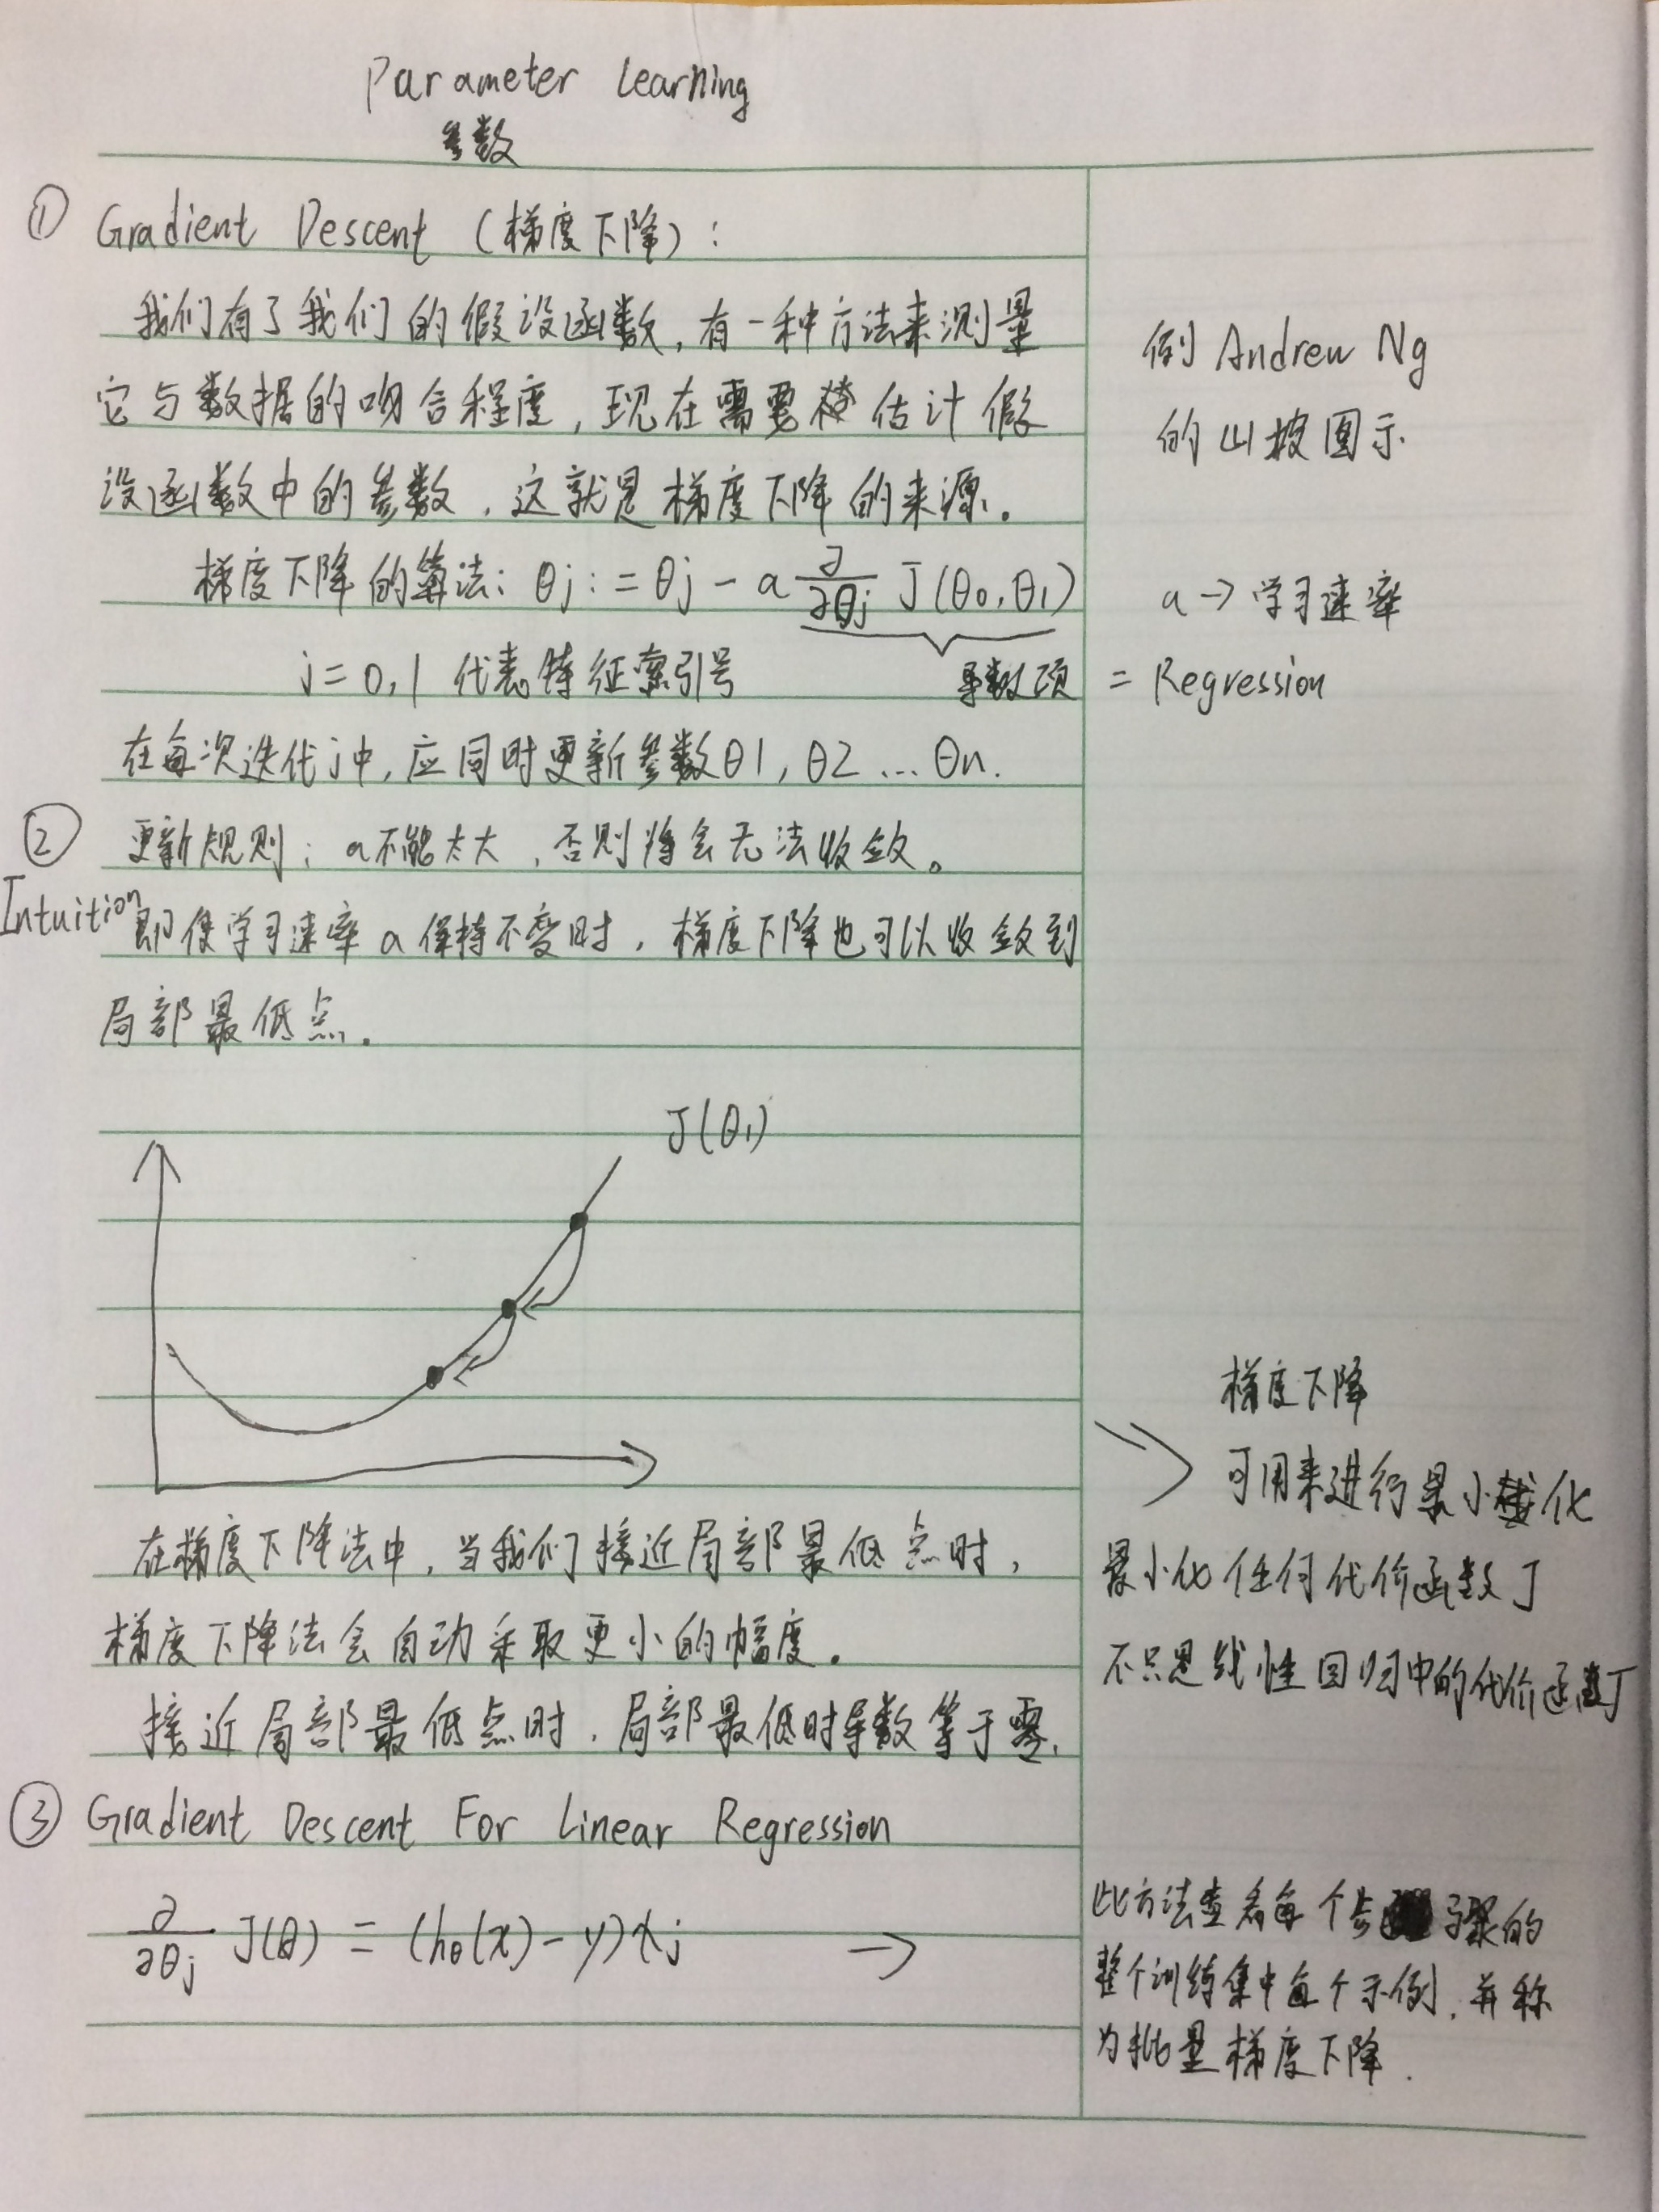 Parameter Learning
参数
① Gradient Descent (梯度下降):
我们有了我们的假设函数,有一种方法来测量
它与数据的吻合程度,现在需要 估计假
设函数中的参数,这就是梯度下降的来源.
梯度下降的算法: θj := θj - a ∂/∂θj J(θ0, θ1)
j = 0, 1 代表特征索引号
导数项
在每次迭代j中,应同时更新参数θ1, θ2 ... θn.
② 更新规则: a不能太大,否则将会无法收敛。
Intuition
即使学习速率a保持不变时,梯度下降也可以收敛到
局部最低点.
J(θ1)
在梯度下降法中,当我们接近局部最低点时,
梯度下降法会自动采取更小的幅度.
接近局部最低点时,局部最低时导数等于零.
③ Gradient Descent For Linear Regression
∂/∂θj J(θ) = (hθ(x) - y)xj →
例 Andrew Ng
的山坡图示
a → 学习速率
= Regression
梯度下降
可用来进行最小 化
最小化任何代价函数J
不只是线性回归中的代价函数J
此方法查看每个步骤的
整个训练集中每个示例,并称
为批量梯度下降.